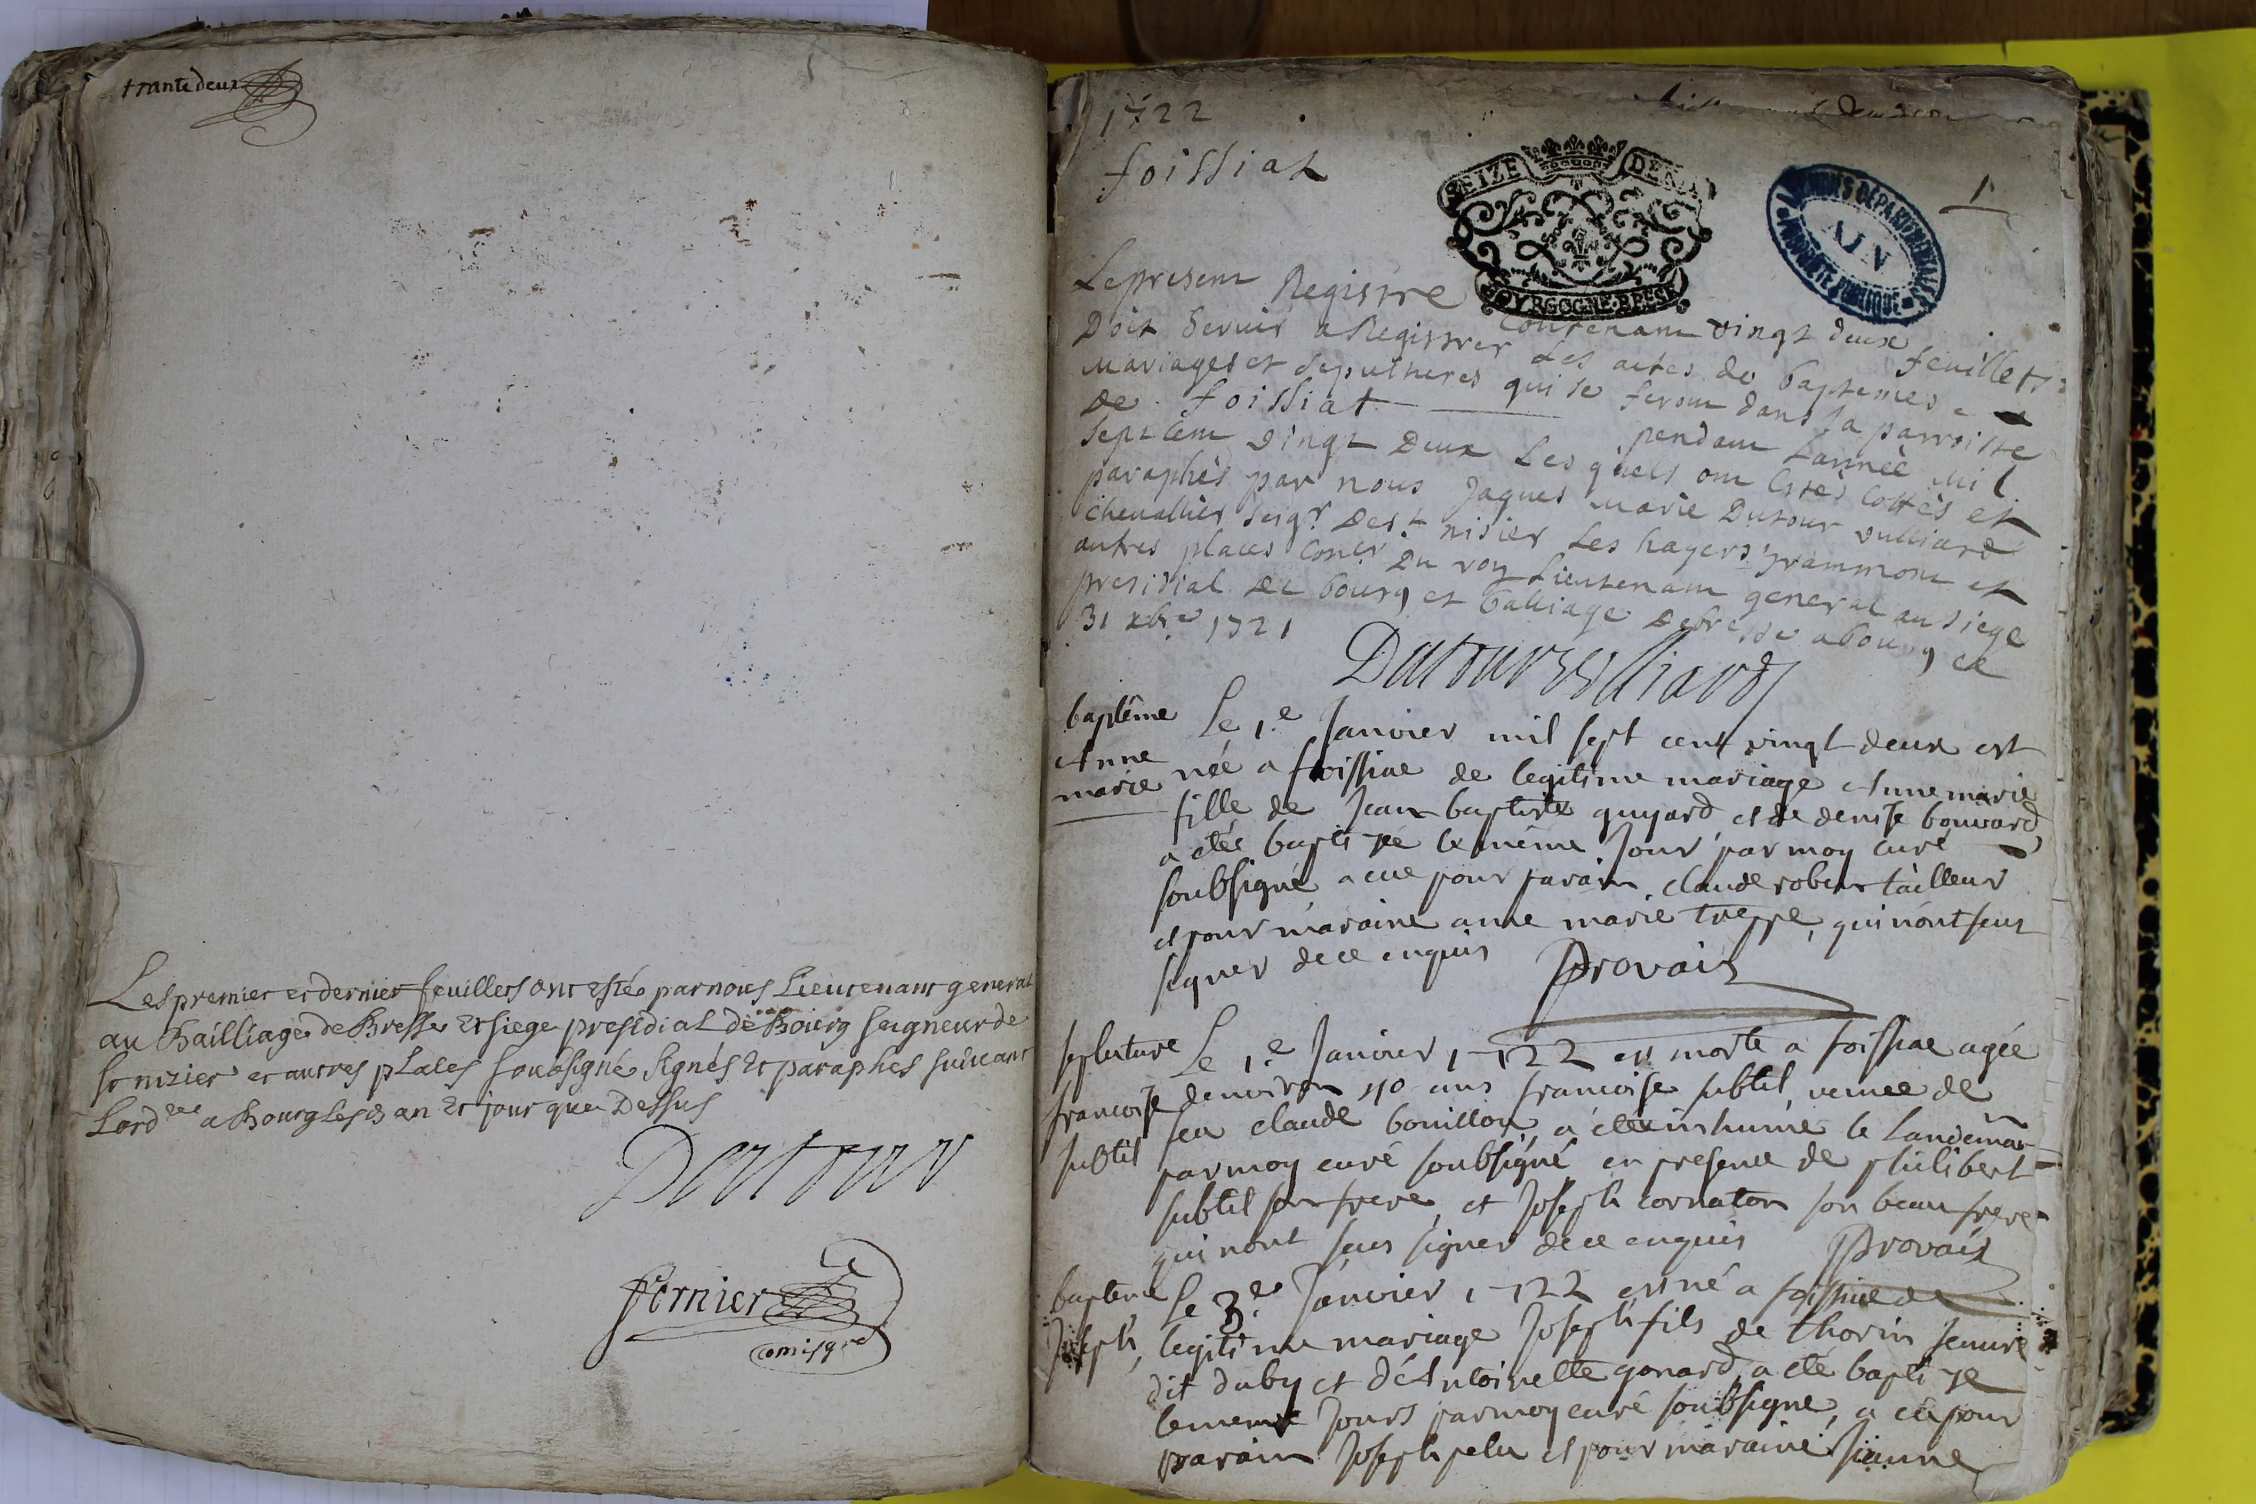 trante deux
Les premier et dernier feuillets ont estés par nous Lieutenant general
au Bailliage de Bresse et siege presidial de Bourg seigneur de
st nizier et autres places soubsigné signés et paraphés suivant
Lord.ce a Bourg les d. an et jour que Dessus
Dutour
fernier
comis gre
1722
foissiat
SEIZE DEN
BOVRGOGNE BRESSE
ARCHIVES DÉPARTEMENTALES
AIN
PROPRIÉTÉ PUBLIQUE
1
Le present Registre Contenant vingt deux feuillets
Doit servir a Registrer les actes de baptemes
Mariages et sepultures qui se feront dans la parroisse
De foissiat pendant Lannée Mil
sept Cent vingt Deux Les quels ont Estés Cottés et
paraphés par nous Jaques Marie Dutour vulliard
Chevallier seigr De st nisier Les hayers grammont et
autres places Coner Du roy Lieutenant general au siege
presidial De bourg et balliage De bresse a bourg ce
31 xbre 1721
Dutour vulliard
baptême
Anne
marie
Le 1.e Janvier mil sept cent vingt deux est
née a foissiac de legitime mariage Anne marie
fille de Jean baptiste guyard et de denise bouvard
a étés baptizée le même Jour par moy curé
soubsigné a eue pour parain claude robert tailleur
et pour maraine anne marie treppe, qui nont seus
signer de ce enquis
Provais
sepluture
francoise
subtil
Le 1.e Janvier 1722 est morte a foissiac agée
denviron 40 ans francoise subtil, veuve de
feu claude bouillon a étés inhumé le Landemain
par moy curé soubsigné en presence de philibert
subtil son frere, et Joseph cornaton son beau frere
qui nont seus signer de ce enquis
Provais
bapteme
Joseph
Le 3.e Janvier 1722 est né a foissiac de
legitime mariage Joseph fils de thorin Jeune
dit duby et d'Antoinette gonard, a été baptize
le meme Jours par moy curé soubsigné, a eu pour
parain Joseph pelu et pour maraine Jeanne